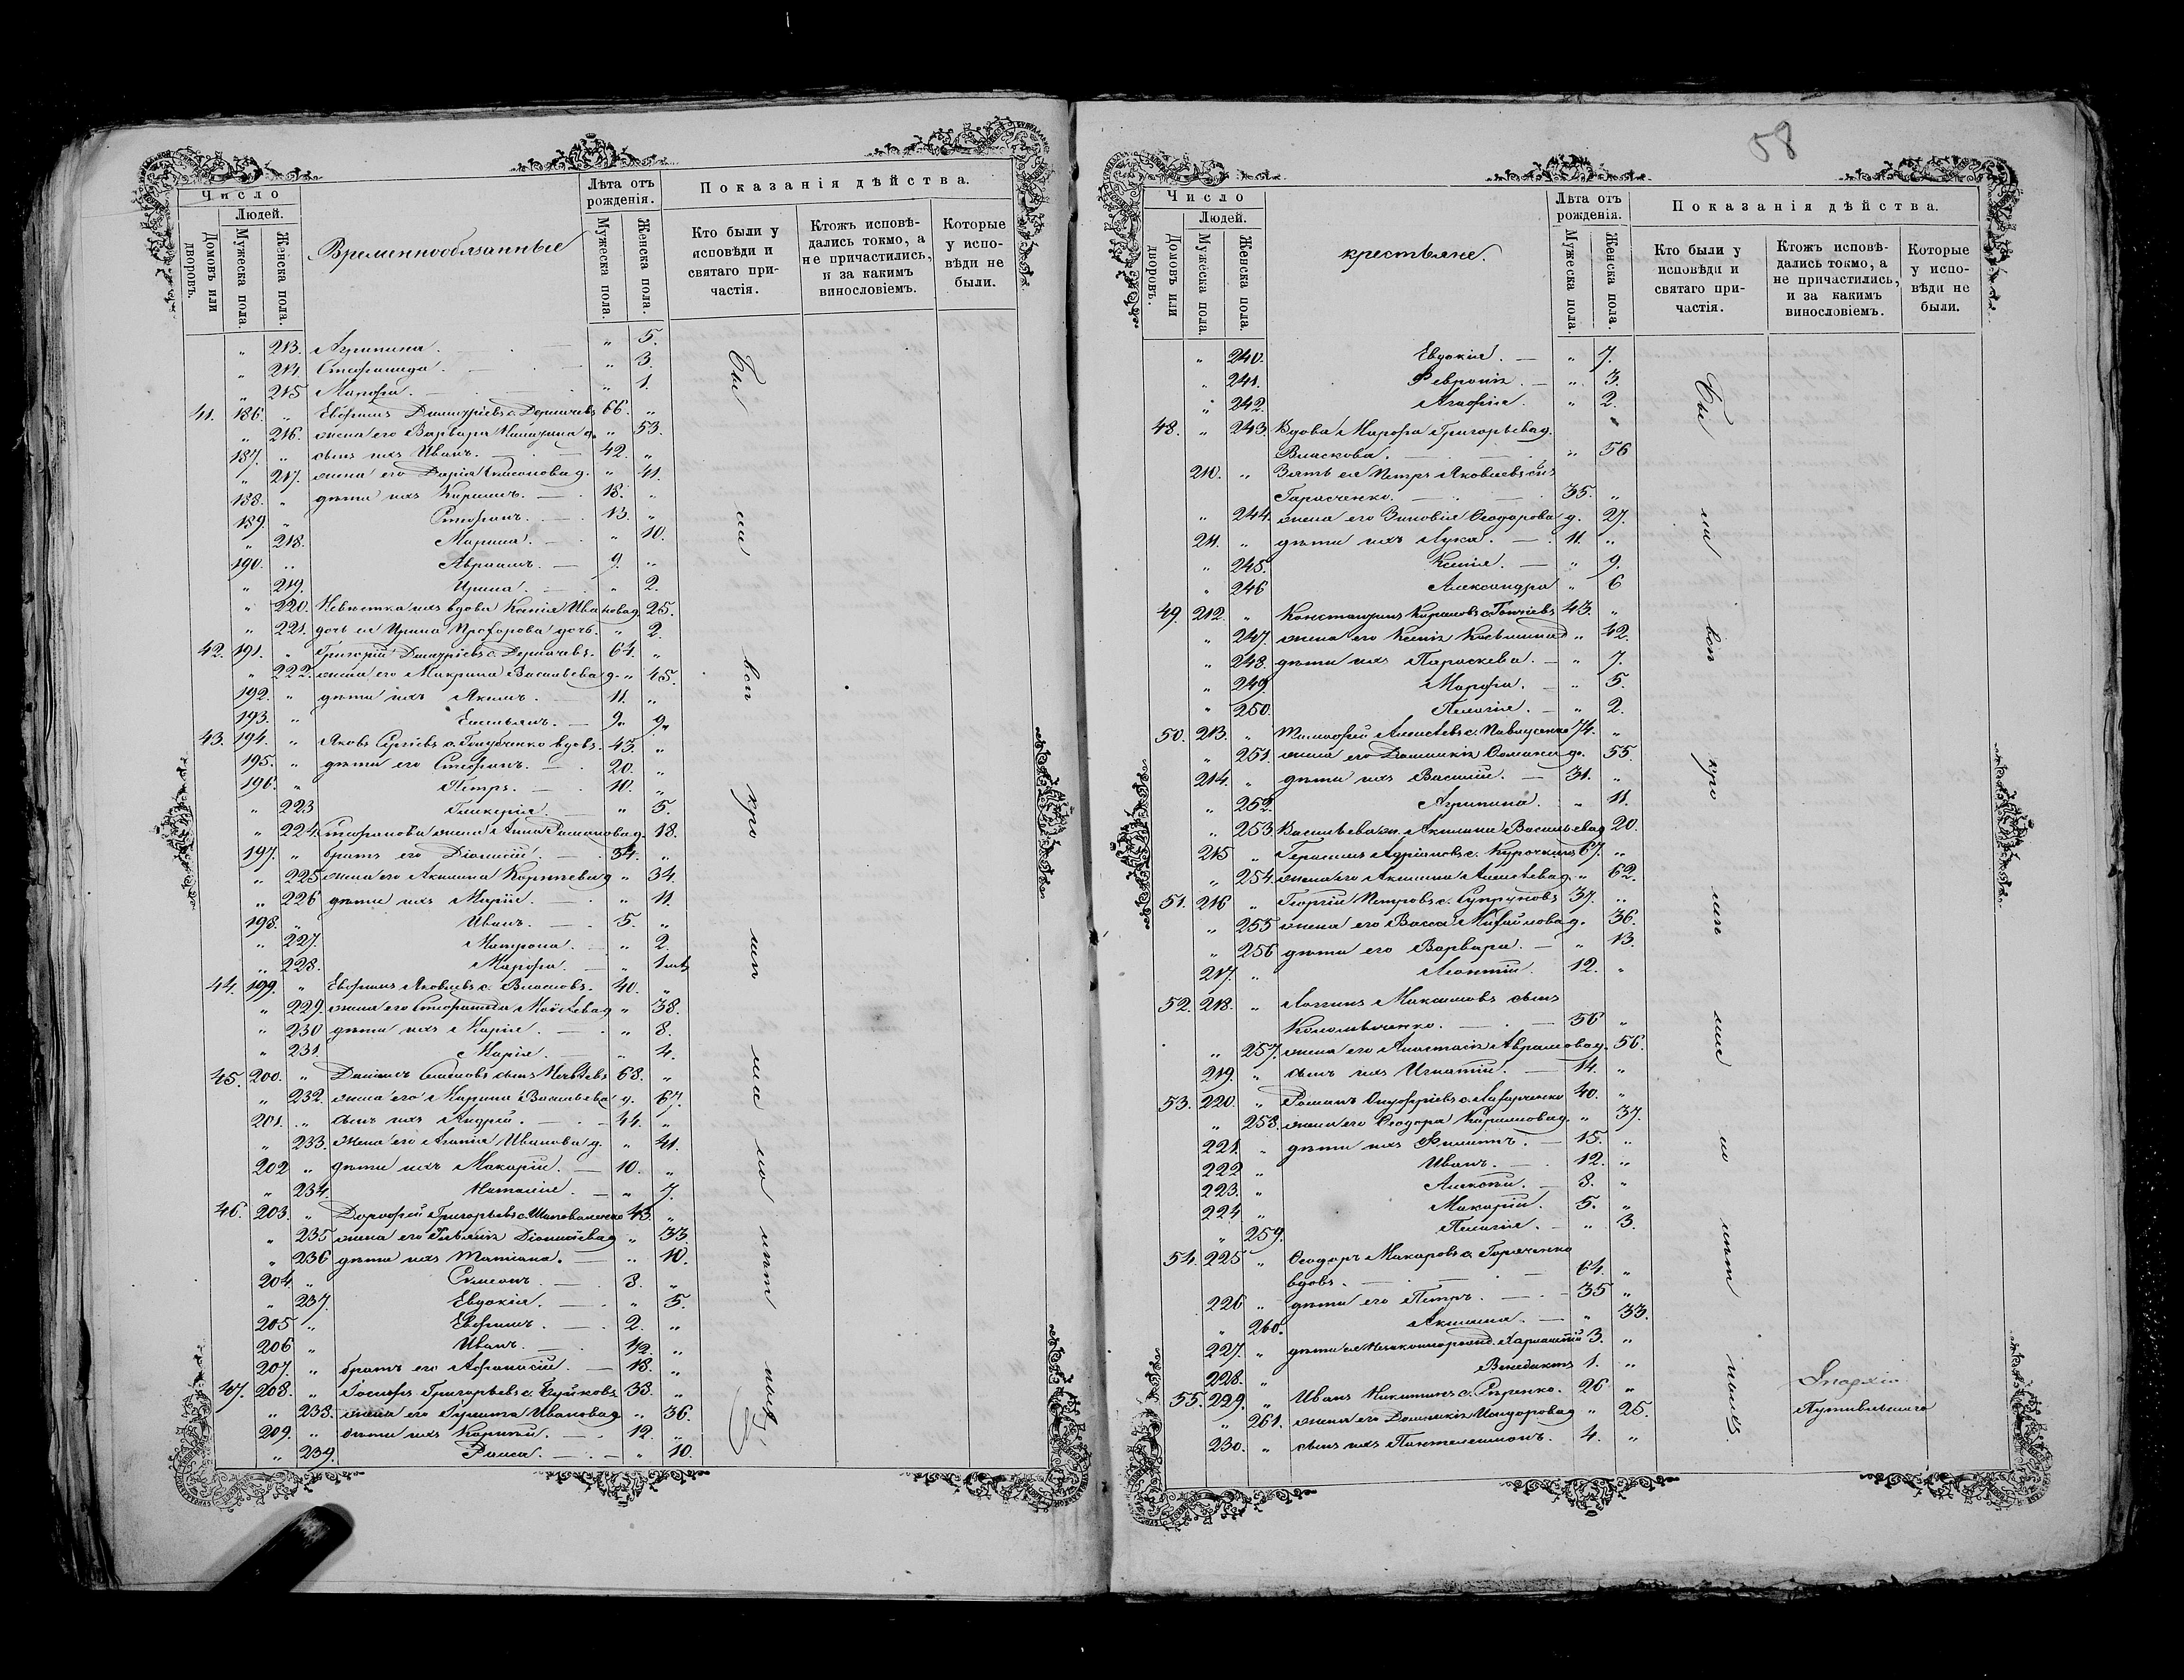 58
Число
Людей.
Домовъ или дворовъ.
Мужеска пола.
Женска пола.
Временнообязанные
Лѣта отъ рожденія.
Мужеска пола.
Женска пола.
Показанія дѣйства.
Кто были у исповѣди и святаго при-частія.
Ктожъ исповѣ-дались токмо, а не причастились, и за какимъ винословіемъ.
Которые у испо-вѣди не были.
" 213. Агрипина. " 5.
" 214. Стефанида. " 3.
" 215 Марфа. " 1.
41. 186. " Евфимъ Димитріевъ с. 66. "
" 216. жена его Варвара д. " 53.
187. " сынъ ихъ Иванъ. 42. "
" 217. жена его Дарія д. " 41.
188. " дѣти ихъ Кириллъ. 18. "
189. " Стефанъ. 13. "
" 218. Марина. " 10.
190. " Авраамъ. 9. "
" 219. Ирина. " 2.
" 220. Невѣстка ихъ вдова Ксенія Иванова д. 25.
" 221. дочь ея Ирина Прохорова дочь. " 2.
42. 191. " Григорій Димитріевъ с. 64. "
" 222. жена его Макрина Васильева д. " 45.
192. " дѣти ихъ Акимъ. 11. "
193. " Емельянъ. 9. 9.
43. 194. " Яковъ Сергіевъ с. Голубченко вдовъ. 43. "
195. " дѣти его Стефанъ. 20. "
196. " Петръ. 10. "
" 223 Гликерія. " 5.
" 224. Стефанова жена Анна Романова д. 18.
197. " братъ его Діонисій. 34. "
" 225 жена его Акилина Корнѣева д. " 34
" 226 дѣти ихъ Марія. " 11
198. " Иванъ. 5. "
" 227. Матрона. " 2.
" 228. Марфа. " 1
44. 199. " Евфимъ Яковлевъ с. Власовъ. 40. "
" 229. жена его Стефанида Моисеева д. " 38.
" 230 дѣти ихъ Марія. " 8.
" 231. Марія. " 4.
45. 200. " Даніилъ сынъ 68. "
" 232. жена его Марина Васильева д. 67.
201. " сынъ ихъ Андрей. 44. "
" 233. жена его Агапія Иванова д. " 41.
202 " дѣти ихъ Макарій. 10. "
" 234. Наталія. " 7.
46. 203. " Дорофей Григорьевъ с. Шаповаленко 43. "
" 235 жена его Діонисіева д. " 33.
" 236 дѣти ихъ Татіана. " 10.
204. " Симеонъ. 8. "
" 237. Евдокія. " 5.
205 " Евфимъ. 2. "
206 " Иванъ. 1/2. "
207. " братъ его Афанасій. 18. "
47. 208. " Іосифъ Григорьевъ с. 38. "
" 238. жена его Іулитта Иванова д. " 36.
209. " дѣти ихъ Корнилій. 12. "
" 239. Раиса. " 10.
Бы ли воп кро мп ша ло лѣт ныхъ
Число
Людей.
Домовъ или дворовъ.
Мужеска пола.
Женска пола.
крестьяне.
Лѣта отъ рожденія.
Мужеска пола.
Женска пола.
Показанія дѣйства.
Кто были у исповѣди и святаго при-частія.
Ктожъ исповѣ-дались токмо, а не причастились, и за какимъ винословіемъ.
Которые у испо-вѣди не были.
" 240. Евдокія. " 7.
" 241. Февронія. " 3.
" 242. Агафія. " 2.
48. " 243. Вдова Марфа Григорьева д.
Власкова. " 56
210. " Зять ея Петръ Яковлевъ сынъ
Тарасченко. 35. "
" 244. жена его Зиновія Ѳеодорова д. 27.
211. " дѣти ихъ Лука. 11. "
" 245. Ксенія. " 9.
" 246 Александра " 6
49. 212. " Константинъ с. 43. "
" 247. жена его Ксенія " 42.
" 248. дѣти ихъ Параскева. " 7.
" 249. Марфа. " 5.
" 250. Пелагія. " 2.
50. 213. " Тимофей Алексѣевъ с. 74. "
" 251. жена его Домникія д. 55.
214. " дѣти ихъ Василій. 31. "
" 252. Агрипина. " 11.
" 253. Васильева ж. Акилина Васильева д. 20.
215 " Герасимъ Адріановъ с. Курочкинъ 67. "
" 254. жена его Акилина Алексѣева д. " 62.
51. 216 " Георгій Петровъ с. Супруновъ 37. "
" 255 жена его Васса Михайлова д. 36.
" 256 дѣти его Варвара. " 13.
217. " Леонтій. 12. "
52. 218. " Логгинъ Максимовъ сынъ
56 "
" 257. жена его Анастасія Авраамова д. 56.
219. " сынъ ихъ Игнатій. 14. "
53. 220. " Романъ Онуфріевъ с. Захарченко 40. "
" 258. жена его Ѳеодора Кириллова д. " 37.
221. " дѣти ихъ Филиппъ. 15. "
222 " Иванъ. 12. "
223. " Алексѣй. 8. "
224 " Макарій. 5. "
" 259. Пелагія. " 3.
54. 225 " Ѳеодоръ Макаровъ с. Горяченко
вдовъ. 64. "
226 " дѣти его Петръ. 35 "
" 260. Акилина. " 33.
227. " дѣти ея незаконнорожд. Харлампій 3. "
228. " Венедиктъ 1. "
55. 229. " Иванъ Никитинъ с. 26 "
" 261. жена его Домникія Исидорова д. " 25.
230. " сынъ ихъ Пантелеимонъ. 4. "
Бы ли воп кро мп ша ло лѣт ныхъ.
Епархіи
Путивльскаго